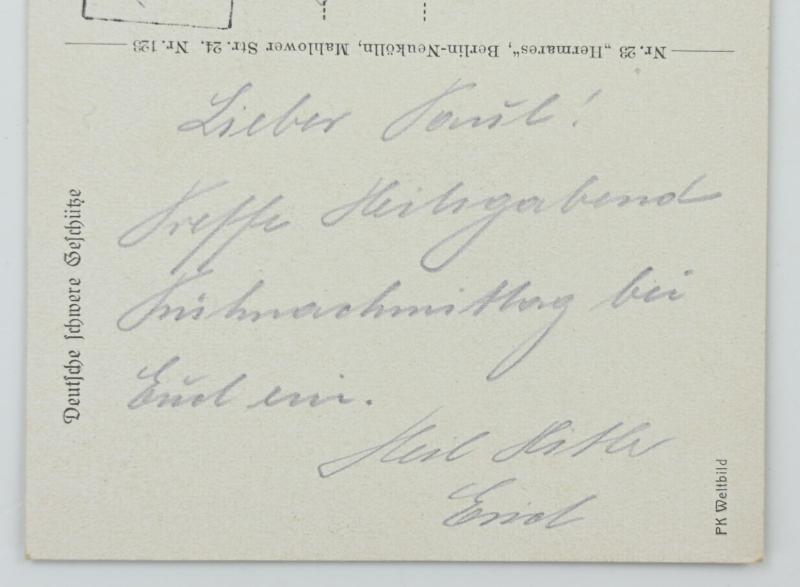 Nr. 23 „Hermares“, Berlin-Neukölln, Mahlower Str. 24. Nr. 123
Lieber Paul!
Treffe Heiligabend
Frühnachmittag bei
Euch ein.
Heil Hitler
Erich
Deutsche schwere Geschütze
PK Weltbild